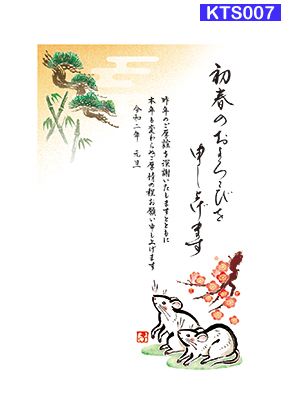 KTS007
初春のおよろこびを
申し上げます
昨年のご厚誼を深謝いたしますとともに
本年も変わらぬご厚情の程お願い申し上げます
令和二年 元旦